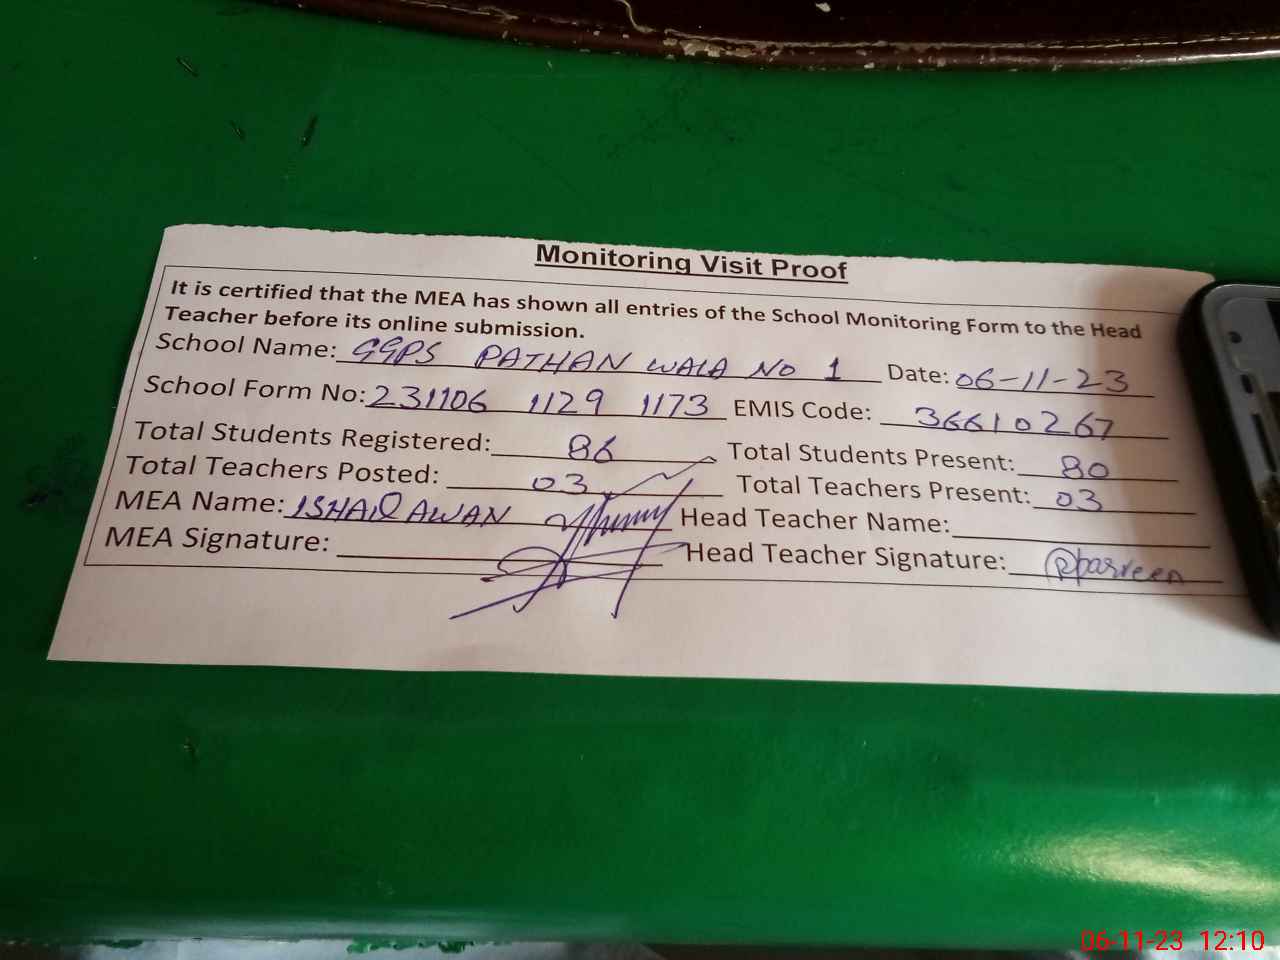 Monitoring Visit Proof
It is certified that the MEA has shown all entries of the School Monitoring Form to the Head
Teacher before its online submission.
School Name: GGPS PATHAN WALA NO 1 Date: 06-11-23
School Form No: 231106 1129 1173 EMIS Code: 36610267
Total Students Registered: 86 Total Students Present: 80
Total Teachers Posted: 03 Total Teachers Present: 03
MEA Name: ISHAQ AWAN Head Teacher Name:
MEA Signature: Head Teacher Signature: Rparveen
06-11-23 12:10